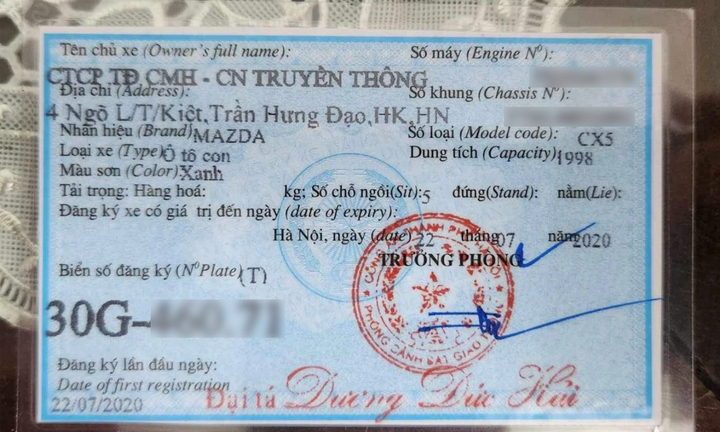 Tên chủ xe (Owner's full name):
Số máy (Engine Nº):
CTCP TĐ CMH - CN TRUYỀN THÔNG
Địa chỉ (Address):
Số khung (Chassis Nº):
4 Ngõ L/T/Kiệt,Trần Hưng Đạo,HK,HN
Nhãn hiệu (Brand) MAZDA
Số loại (Model code): CX5
Loại xe (Type) Ô tô con
Dung tích (Capacity) 1998
Màu sơn (Color) Xanh
Tải trọng: Hàng hoá: kg; Số chỗ ngồi(Sit): 5 đứng(Stand): nằm(Lie):
Đăng ký xe có giá trị đến ngày (date of expiry):
Hà Nội, ngày (date) 22 tháng 07 năm 2020
TRƯỞNG PHÒNG
Biển số đăng ký (NºPlate) (T)
30G-
Đăng ký lần đầu ngày:
Date of first registration
22/07/2020
Đại tá Dương Đức Hải